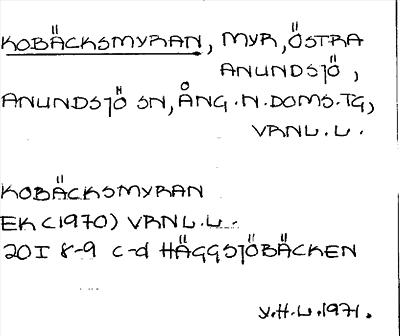 KOBÄCKSMYRAN, MYR, ÖSTRA
ANUNDSJÖ,
ANUNDSJÖ SN, ÅNG.N.DOMS.TG,
VRNL.L.
KOBÄCKSMYRAN
EK (1970) VRNL.L.
20I 8-9 c-d HÄGGSJÖBÄCKEN
Y.H.L.1971.